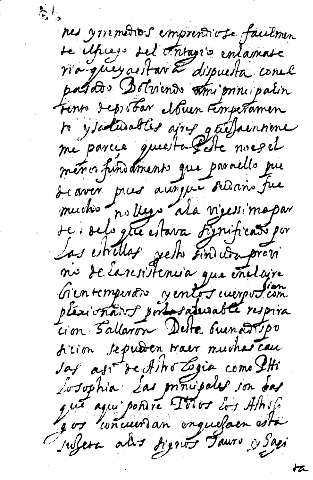 nes y remedios emprendiose facilmen
te el fuego del contagio en la mate
ria que ya estava dispuesta con el
pasado Bolviendo a mi principal in
tento de probar el buen temperamen
to y saludables ayres que Baena tiene
me parece questa Peste no es el
menor fundamento que para ello pue
de aver pues aunque su daño fue
mucho no llego a la vigessima par
te de lo que estava significado por
las estrellas y esto sin duda provi
no de la resistencia que en el aire
bien temperado y en los cuerpos
plexionados por la saludable respira
cion hallaron Desta buena dispo
sicion se pueden traer muchas cau
sas asi de Astrologia como Phi
losophia las principales son las
que aqui pondre Todos los Astrolo
gos concuerdan en que Baena esta
sujeta a los signos Tauro y Sagi
ta